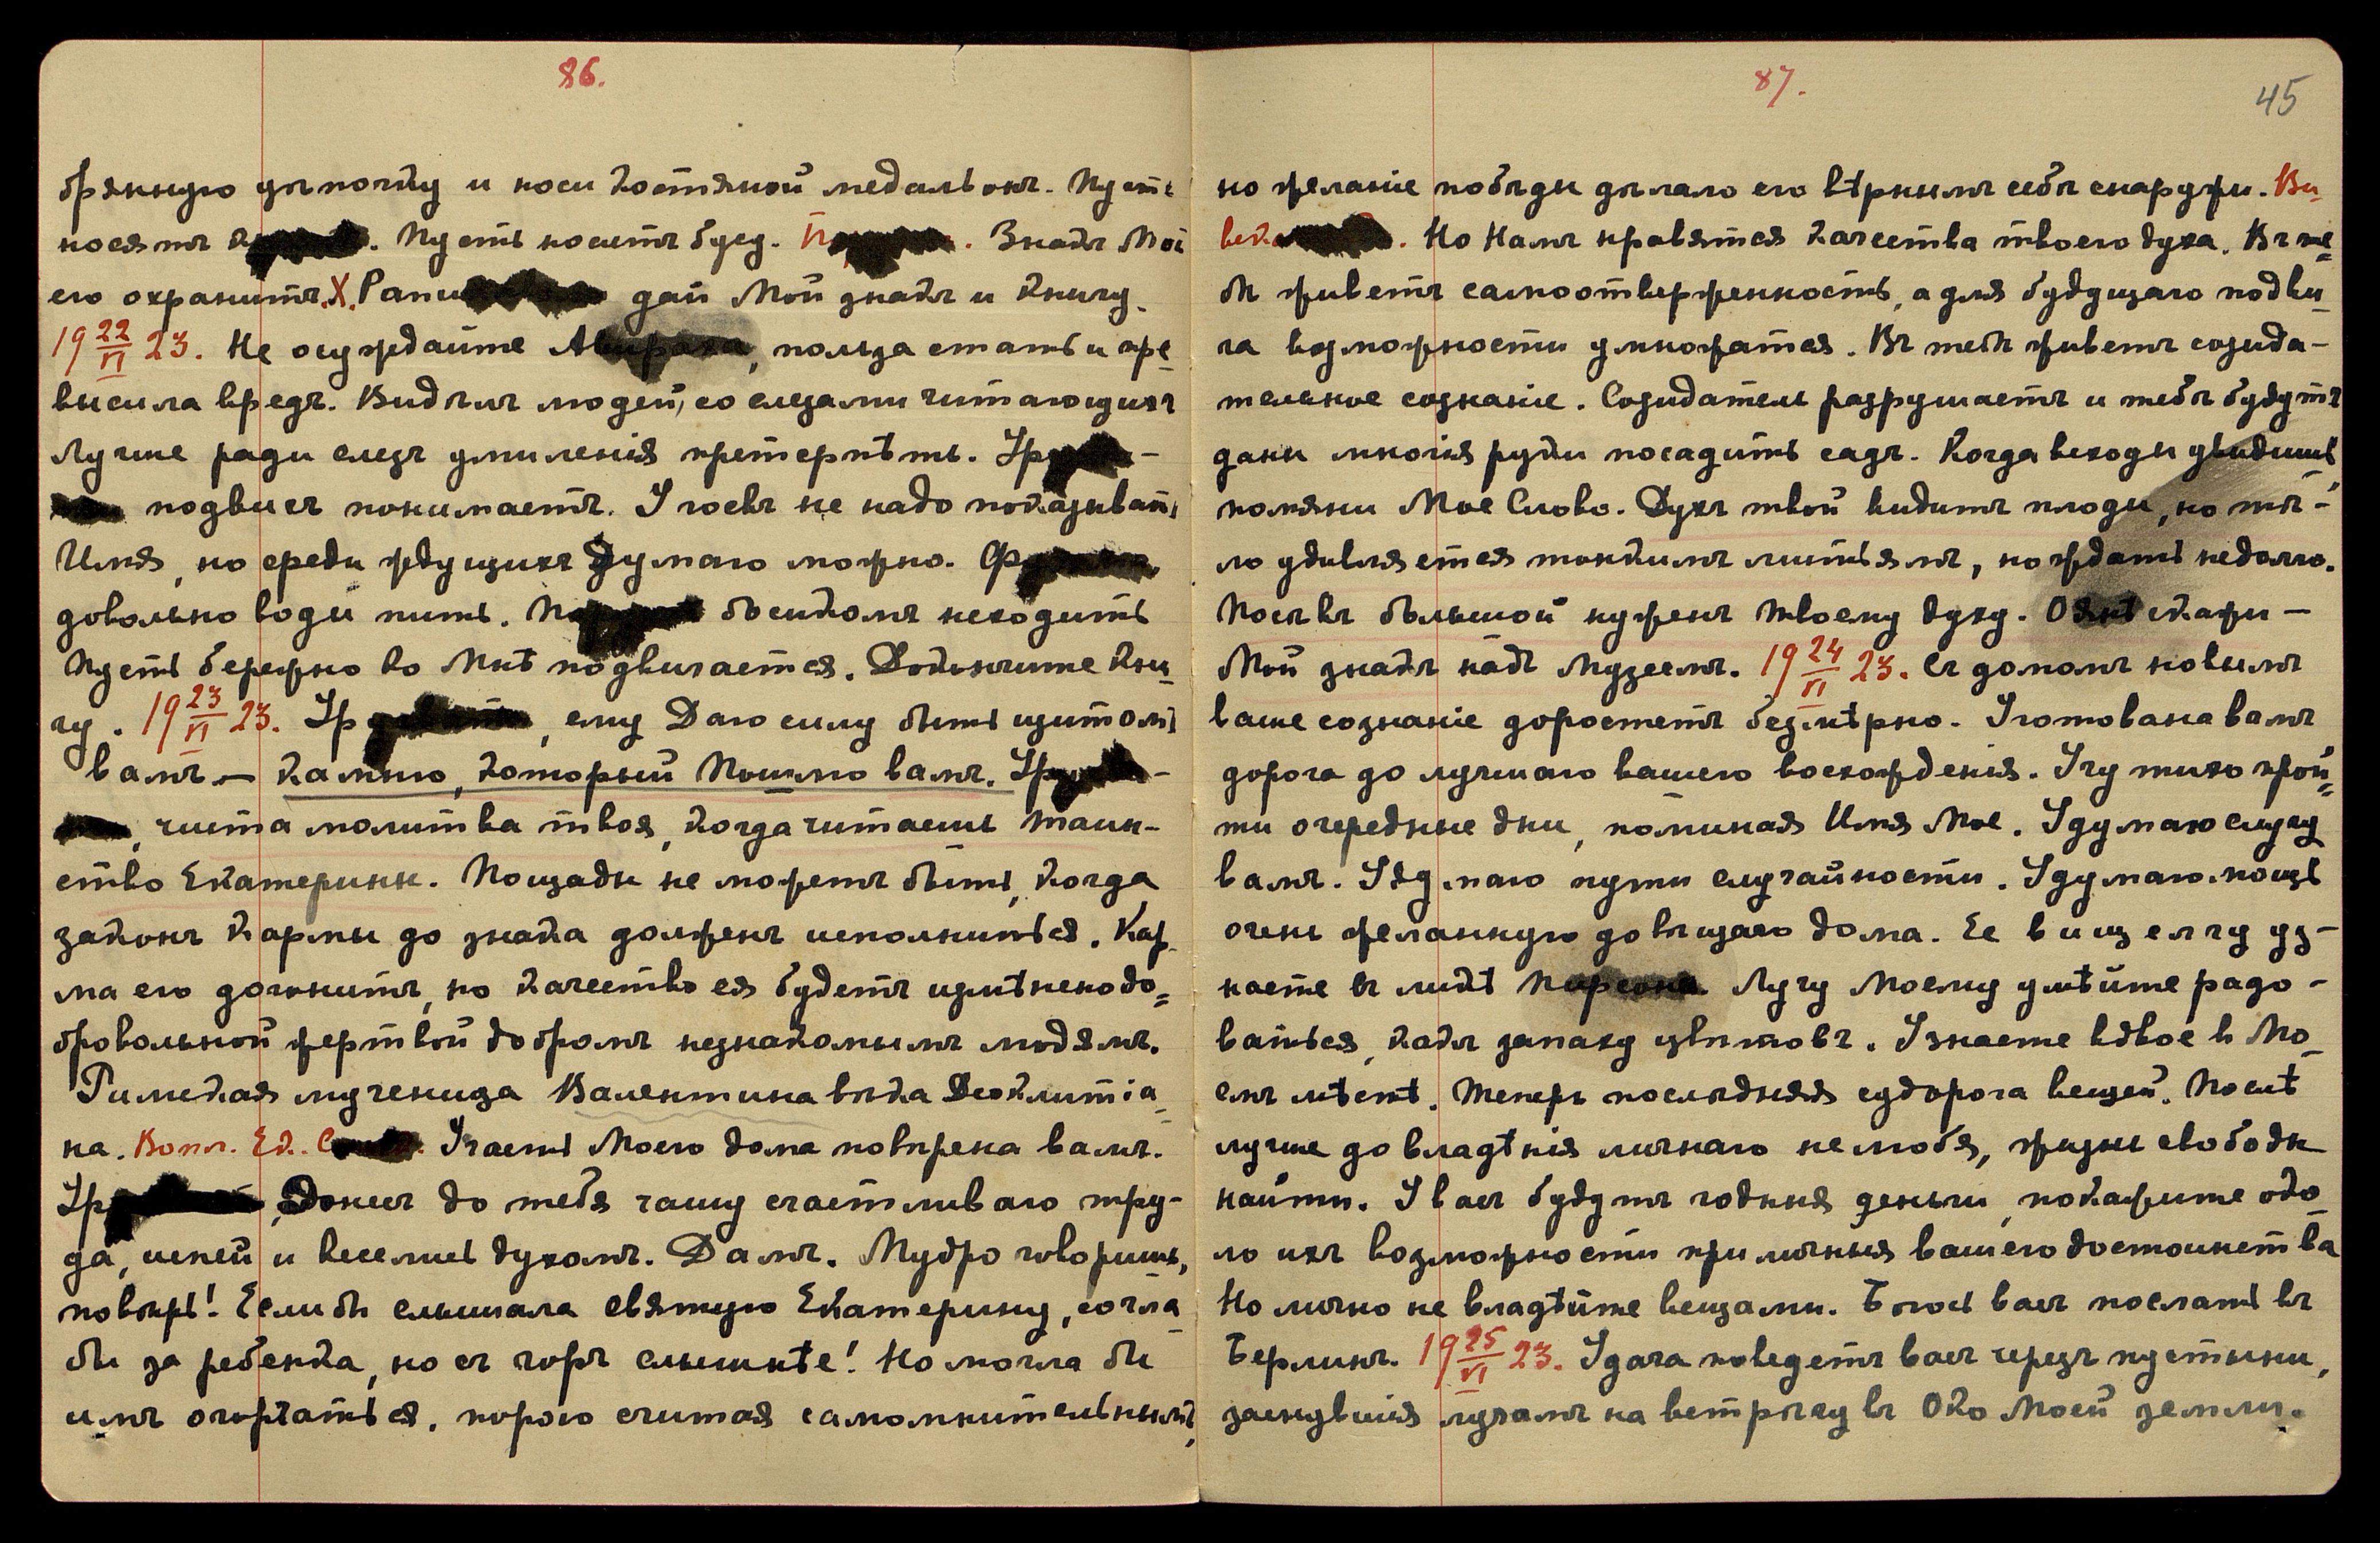 86.
брянную цѣпочку и носи костяной медальонъ. Пусть
носятъ. Пусть носитъ бусу. Знакъ Мой
его охранитъ. Х. дай Мой знакъ и книгу.
19 22/VI 23. Не осуждайте, польза статьи пре-
высила вредъ. Видѣлъ людей, со слезами читающихъ
Лучше ради слезъ умиленія претерпѣть.
подвигъ понимаетъ. У гостя не надо показывать
Имя, но среди ждущихъ Думаю можно.
довольно воды пить. босикомъ не ходить
Пусть бережно ко Мнѣ подвигается. Докончите кни-
гу. 19 23/VI 23. ему Даю силу быть щитомъ
вамъ — камню, который Пошлю вамъ.
чиста молитва твоя, когда читаешь таин-
ство Екатерины. Пощады не можетъ быть, когда
законъ кармы до знака долженъ исполниться. Кар-
ма его догонитъ, но качество ея будетъ измѣнено до-
бровольной жертвой добромъ незнакомымъ людямъ.
Римская мученица Валентина вѣка Деоклитіа-
на. Вопл. Ек. Участь Моего дома повѣрена вамъ.
Донесъ до тебя чашу счастливаго тру-
да, испей и веселись духомъ. Дамъ. Мудро говоришь,
повѣрь! Если бы слышала святую Екатерину, сочла
бы за ребенка, но съ горъ слышнѣе! Но могла бы
имъ огорчаться, порою считая самомнительнымъ,
87.
45
но желаніе побѣды дѣлало его вѣрнымъ себѣ снаружи. Ви-
Но Намъ нравятся качества твоего духа. Въ те-
бѣ живетъ самоотверженность, а для будущаго подви-
га возможности умножатся. Въ тебѣ живетъ созида-
тельное сознаніе. Созидатель разрушаетъ и тебѣ будутъ
даны многія руки посадить садъ. Когда всходы увидишь
помяни Мое Слово. Духъ твой видитъ плоды, но тѣ-
ло удивляется тонкимъ листьямъ, но ждать недолго.
Посѣвъ большой нуженъ твоему духу. скажи —
Мой знакъ надъ Музеемъ. 19 24/VI 23. Съ домомъ новымъ
ваше сознаніе доростетъ безмѣрно. Уготована вамъ
дорога до лучшаго вашего восхожденія. Учу тихо прой-
ти очередные дни, поминая Имя Мое. Удумаю слугу
вамъ. Удумаю пути случайности. Удумаю мощь
очень желанную до вѣщаго дома. Ее вищелчу уз-
наете въ ликѣ. Лучу Моему умѣйте радо-
ваться, какъ запаху цвѣтовъ. Узнаете вдвое в Мо-
емъ мѣстѣ. Теперь послѣдняя судорога вещей. Послѣ
лучше до владѣнія личнаго не любя, жизнь свободы
найти. У васъ будутъ годныя деньги, покажите одо-
ло ихъ возможности приличныя вашего достоинства
Но лично не владѣйте вещами. Боюсь васъ послать въ
Берлинъ. 19 25/VI 23. Удача поведетъ васъ черезъ пустыни,
заснувшія лучамъ на встрѣчу въ Око Моей земли.